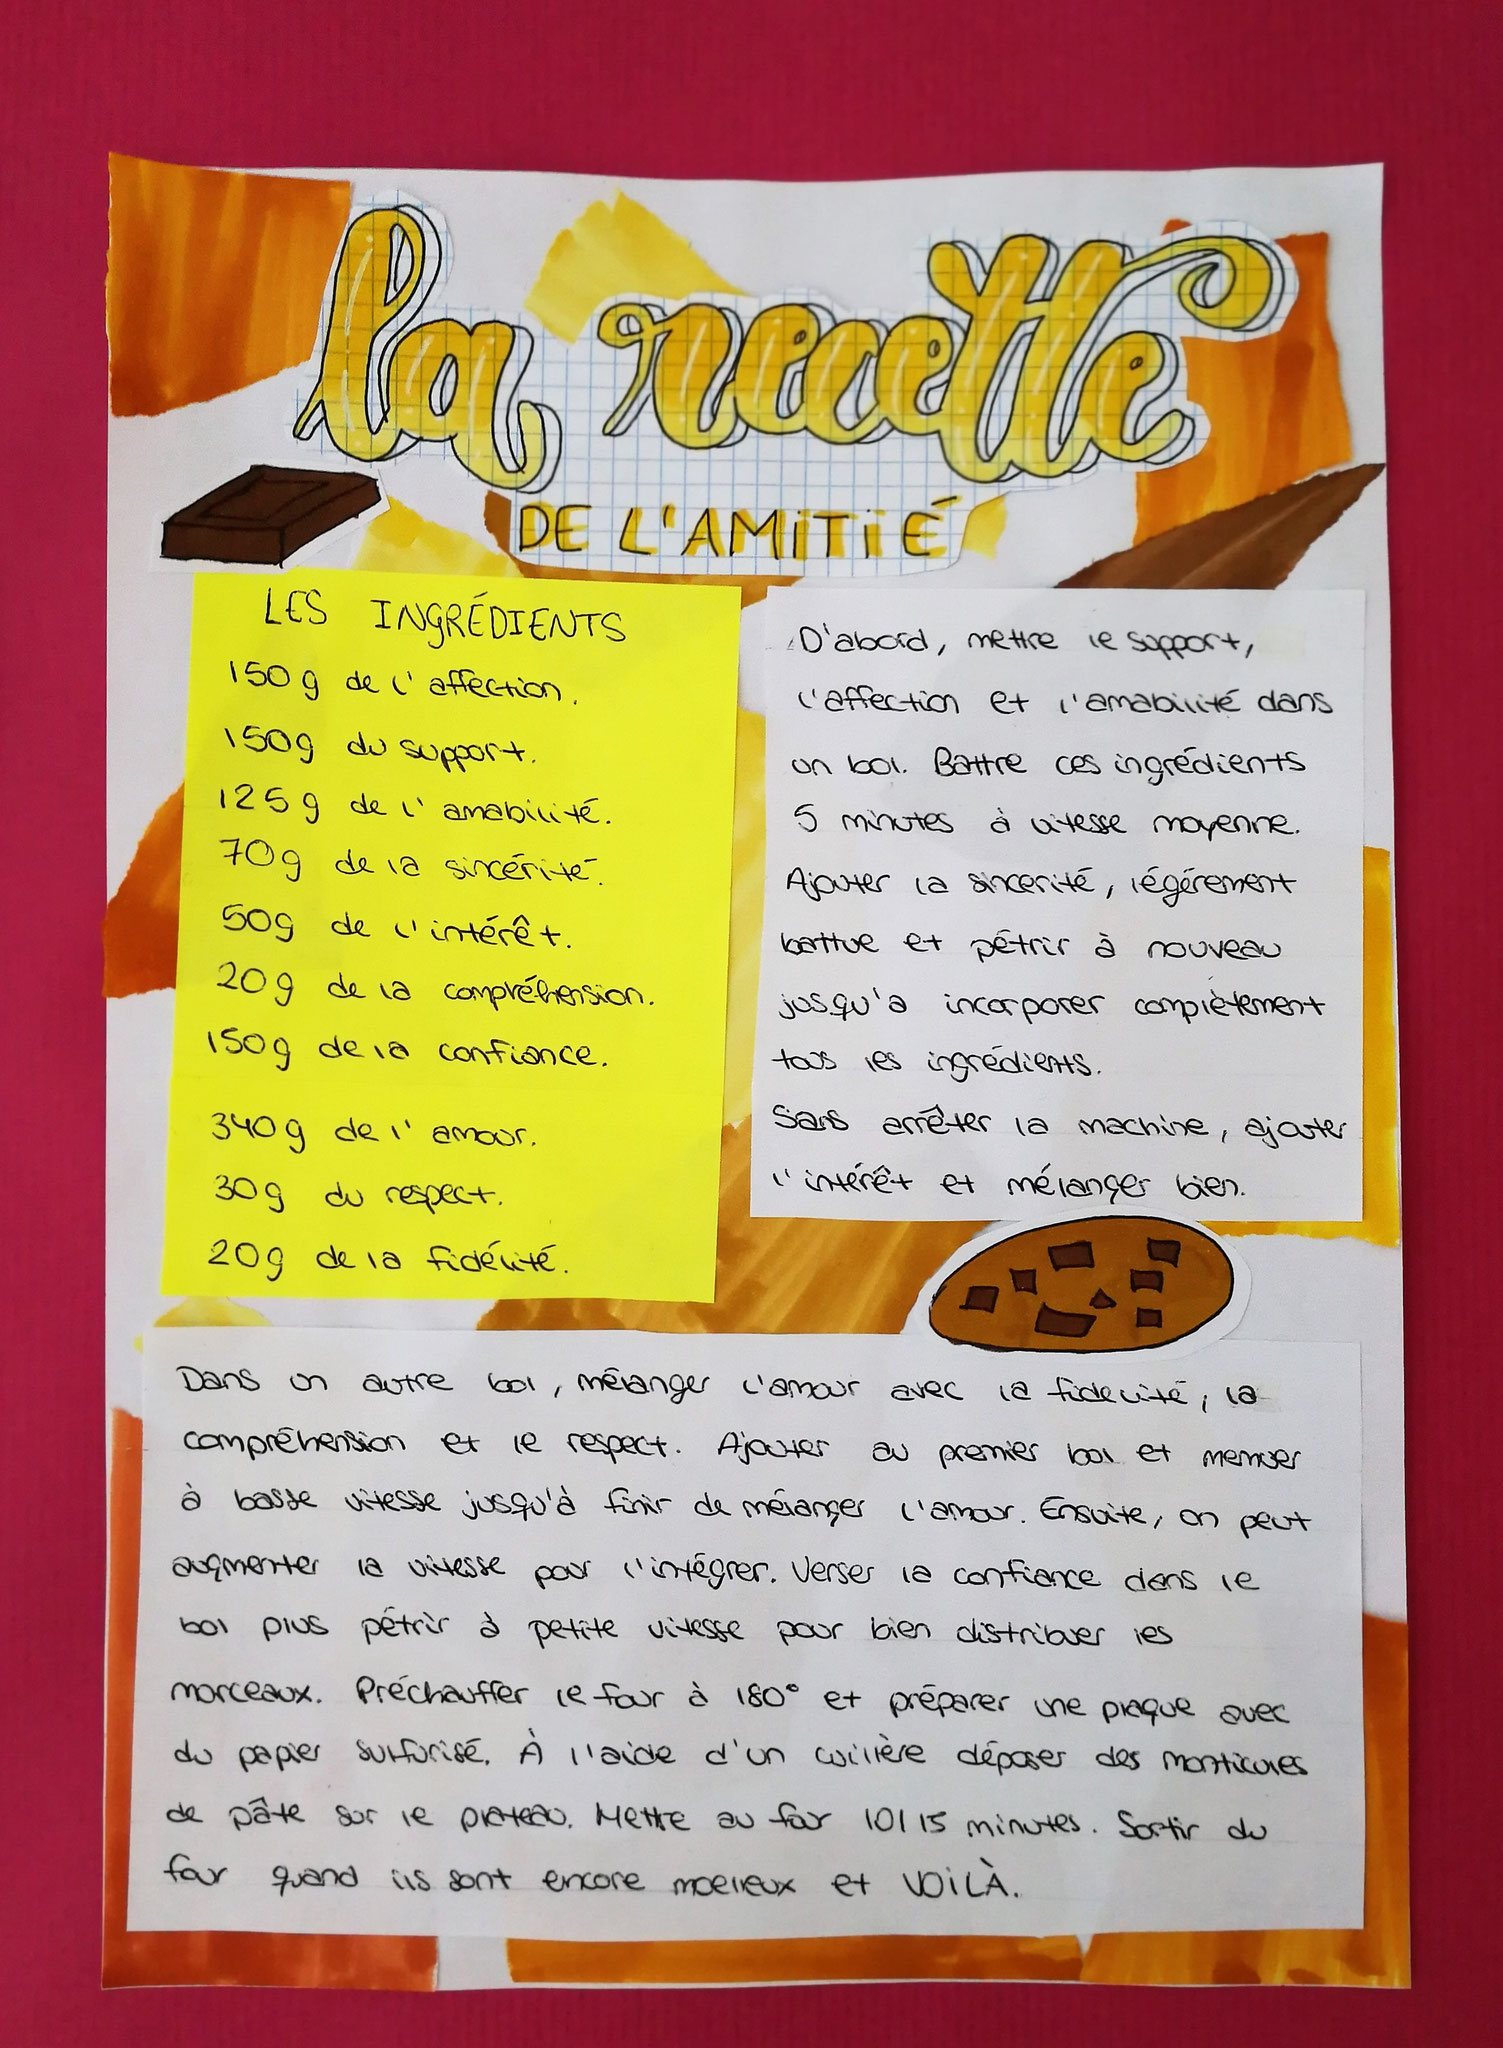 la recette
DE L'AMITIÉ
LES INGRÉDIENTS
150g de l'affection.
150g du support.
125g de l'amabilité.
70g de la sincérité.
50g de l'intérêt.
20g de la compréhension.
150g de la confiance.
340g de l'amour.
30g du respect.
20g de la fidélité.
D'abord, mettre le support,
l'affection et l'amabilité dans
un bol. Battre ces ingrédients
5 minutes à vitesse moyenne.
Ajouter la sincerité, légérement
battue et pétrir à nouveau
jusqu'a incorporer complètement
tous les ingrédients.
Sans arrêter la machine, ajouter
l'intérêt et mélanger bien.
Dans un autre bol, mélanger l'amour avec la fidelité, la
compréhension et le respect. Ajouter au premier bol et
à basse vitesse jusqu'à finir de mélanger l'amour. Ensuite, on peut
augmenter la vitesse pour l'intégrer. Verser la confiance dans le
bol plus pétrir à petite vitesse pour bien distribuer les
morceaux. Préchauffer le four à 180° et préparer une plaque avec
du papier sulfurisé. À l'aide d'un cuillère déposer des monticules
de pâte sur le plateau. Mettre au four 10/15 minutes. Sortir du
four quand ils sont encore moelleux et VOILÀ.